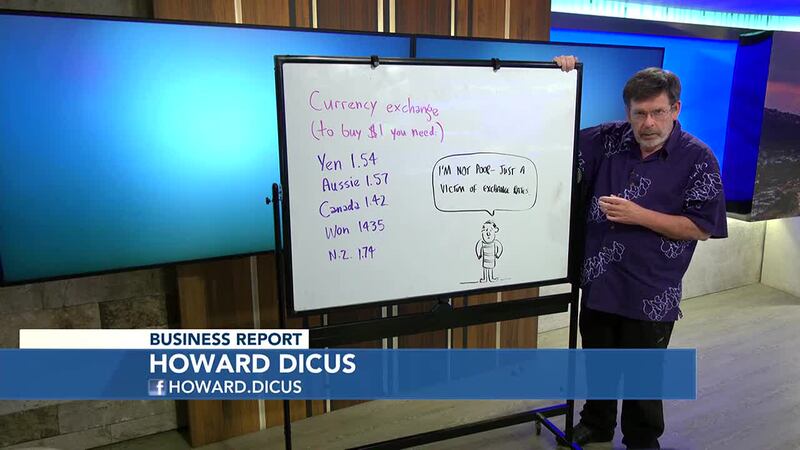 Currency exchange
(to buy $1 you need:)
Yen 1.54
Aussie 1.57
Canada 1.42
Won 1435
N.Z. 1.74
I'M NOT POOR- JUST A
VICTIM OF EXCHANGE RATES
BUSINESS REPORT
HOWARD DICUS
f HOWARD.DICUS